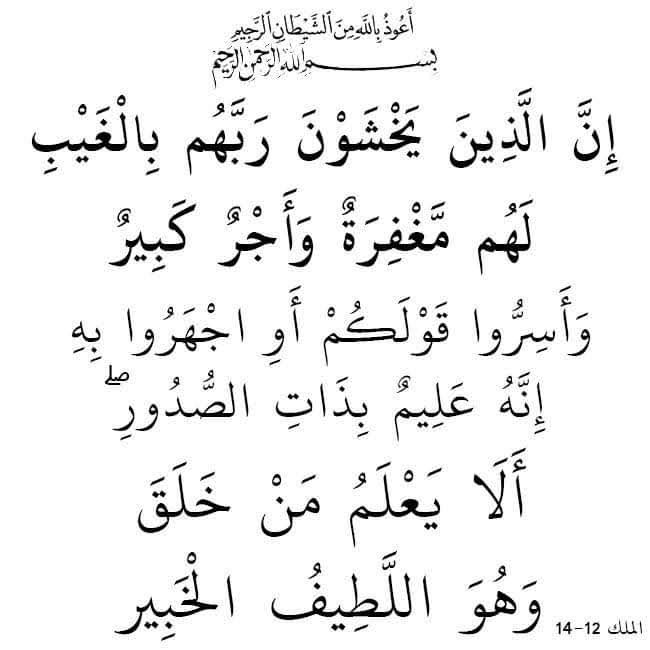 أَعُوذُ بِاللَّهِ مِنَ الشَّيْطَانِ الرَّجِيمِ
بِسْمِ اللَّهِ الرَّحْمَنِ الرَّحِيمِ
إِنَّ الَّذِينَ يَخْشَوْنَ رَبَّهُم بِالْغَيْبِ
لَهُم مَّغْفِرَةٌ وَأَجْرٌ كَبِيرٌ
وَأَسِرُّوا قَوْلَكُمْ أَوِ اجْهَرُوا بِهِ
إِنَّهُ عَلِيمٌ بِذَاتِ الصُّدُورِ ۖ
أَلَا يَعْلَمُ مَنْ خَلَقَ
وَهُوَ اللَّطِيفُ الْخَبِير
الملك 12-14